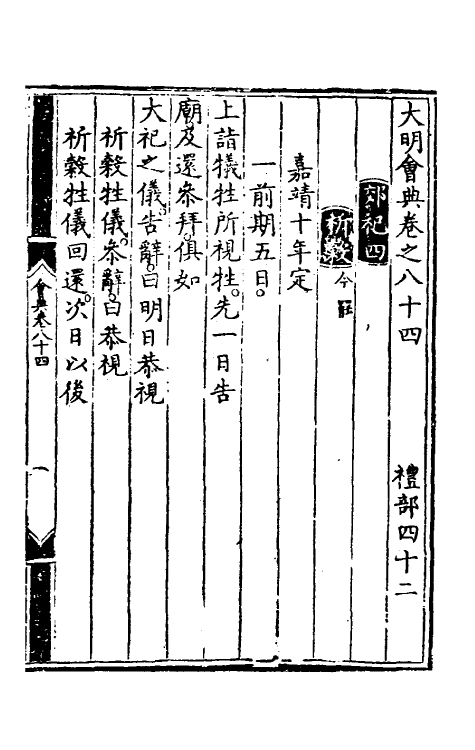 大明會典卷之八十四　禮部四十二
郊祀四
祈穀 今
嘉靖十年定
一前期五日。
上詣犧牲所視牲。先一日告
廟及還參拜俱如
大祀之儀。告辭。曰明日恭視
祈穀牲儀。參辭。曰恭視
祈穀牲儀回還。次日以後
會典卷八十四
一